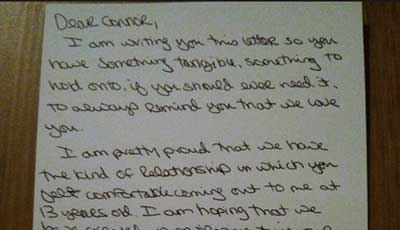 Dear Connor,
I am writing you this letter so you
have something tangible, something to
hold onto, if you should ever need it,
to always remind you that we love
you.
I am pretty proud that we have
the kind of relationship in which you
felt comfortable coming out to me at
13 years old. I am hoping that we